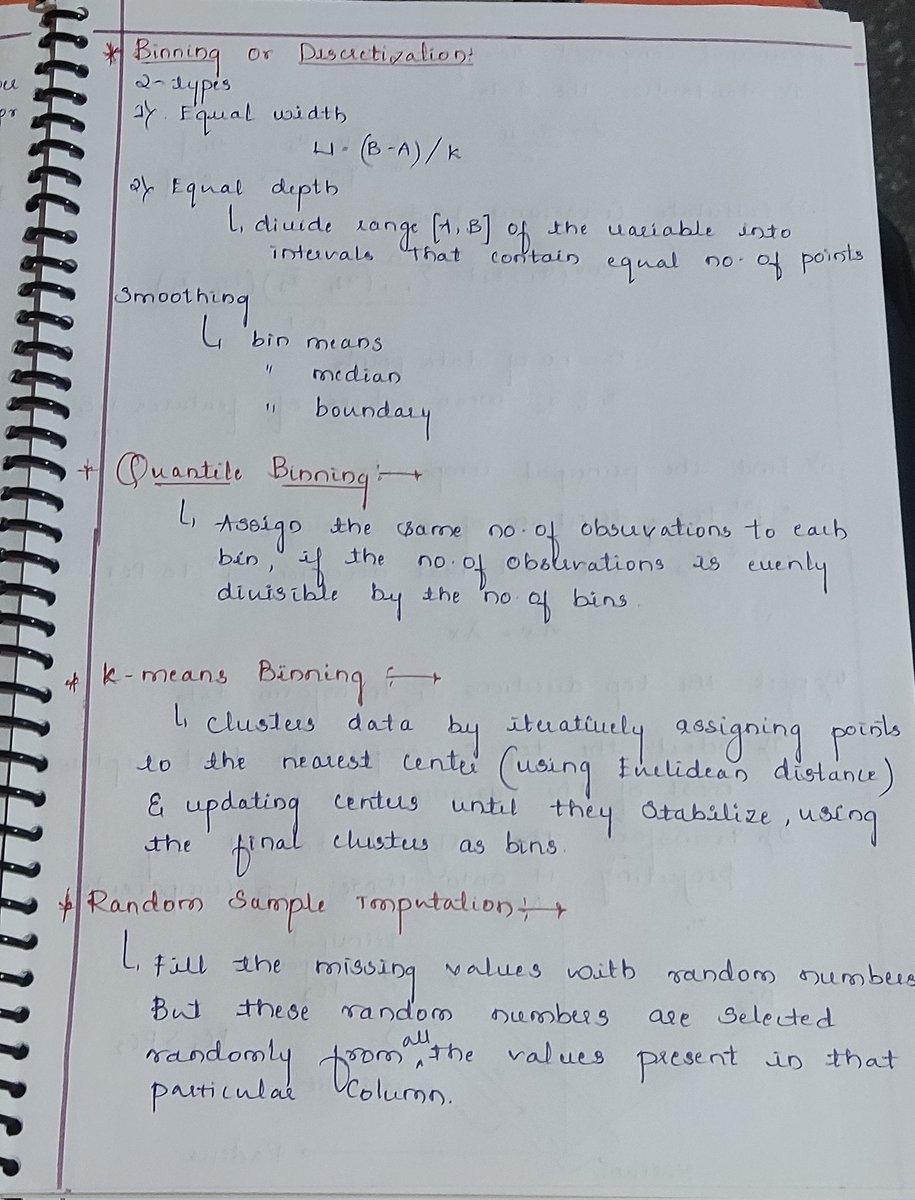 * Binning or Discretization:
2-types
1). Equal width
W = (B-A)/K
2) Equal depth
↳ divide range [A, B] of the variable into
intervals that contain equal no. of points
Smoothing
↳ bin means
" median
" boundary
* Quantile Binning :→
↳ Assign the same no. of observations to each
bin, if the no. of observations is evenly
divisible by the no. of bins.
* K-means Binning :→
↳ clusters data by iteratively assigning points
to the nearest center (using Euclidean distance)
& updating centers until they stabilize, using
the final clusters as bins.
* Random Sample Imputation :→
↳ fill the missing values with random numbers
But these random numbers are selected
randomly from all the values present in that
particular column.